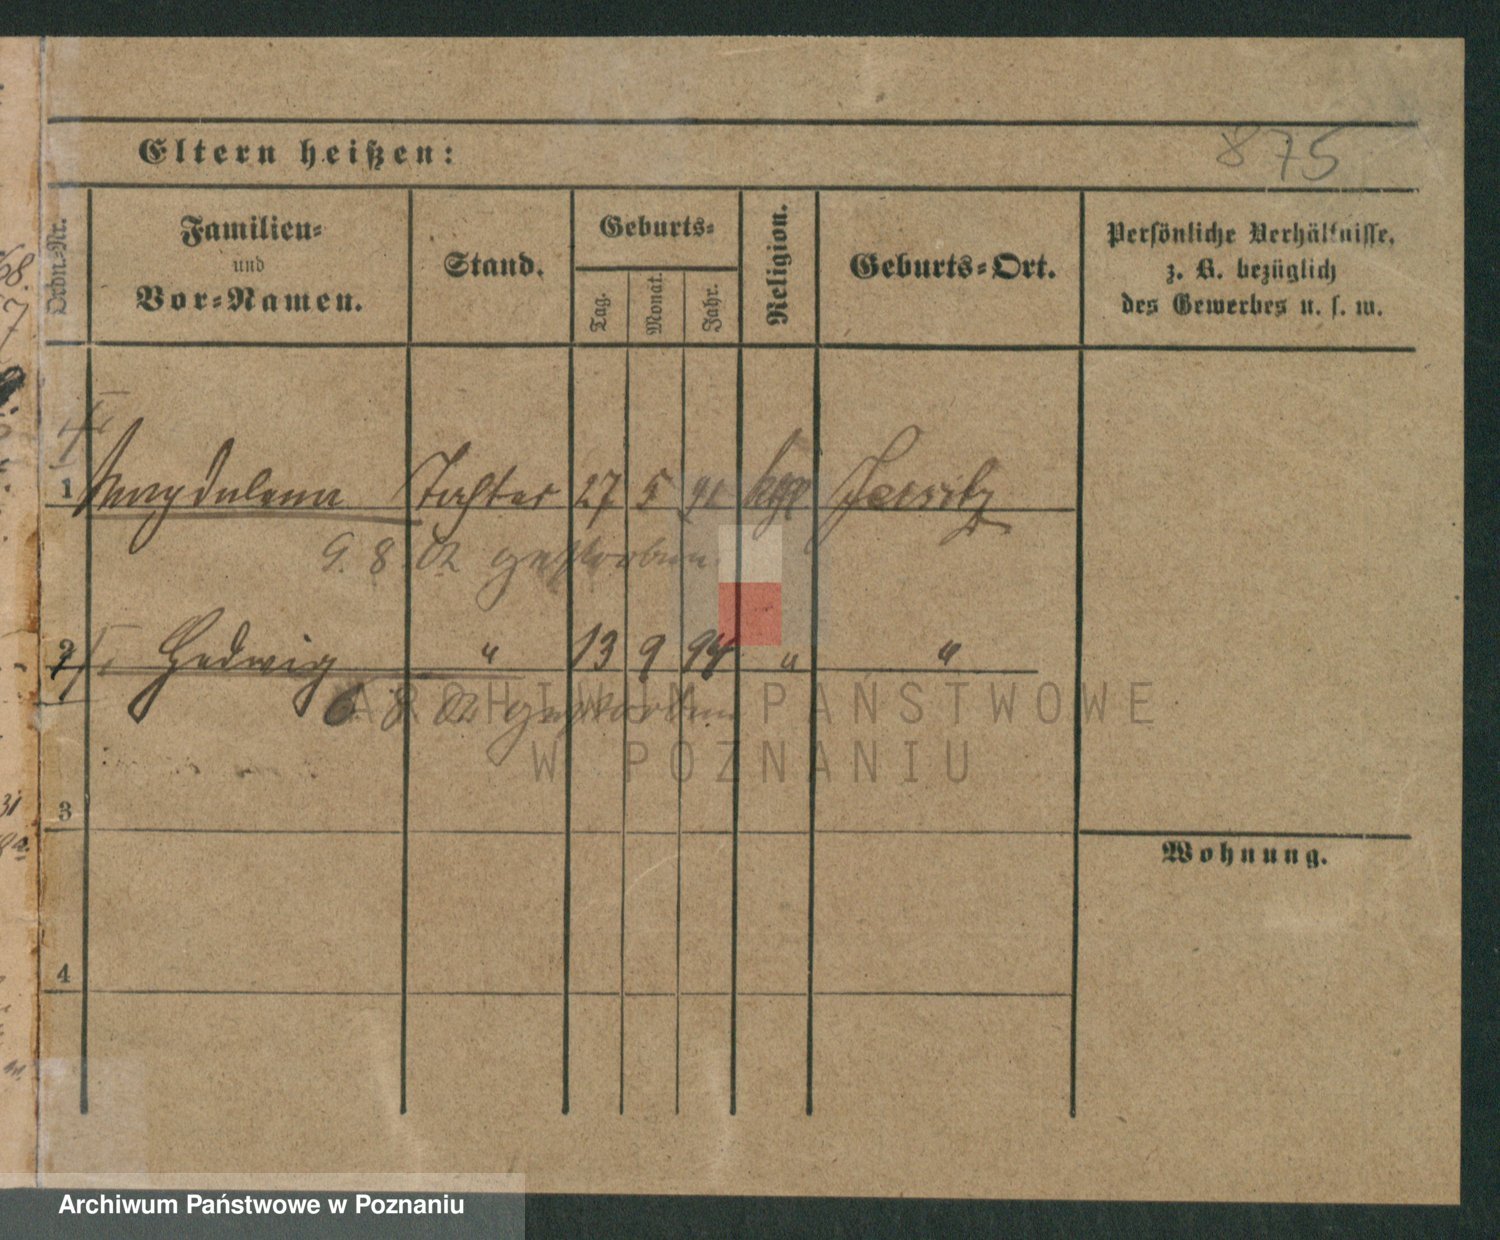 875
Eltern heißen:
Ordn.-Nr.
Familien-
und
Vor-Namen.
Stand.
Geburts-
Tag.
Monat.
Jahr.
Religion.
Geburts-Ort.
Persönliche Verhältnisse,
z. B. bezüglich
des Gewerbes u. s. w.
1 Magdalena Tochter 27 5 90 kath Jersitz
9. 8. 02 gestorben
2 Hedwig " 13 9 94 " "
6. 8. 02 gestorben
ARCHIWUM PAŃSTWOWE
W POZNANIU
3
Wohnung.
4
Archiwum Państwowe w Poznaniu